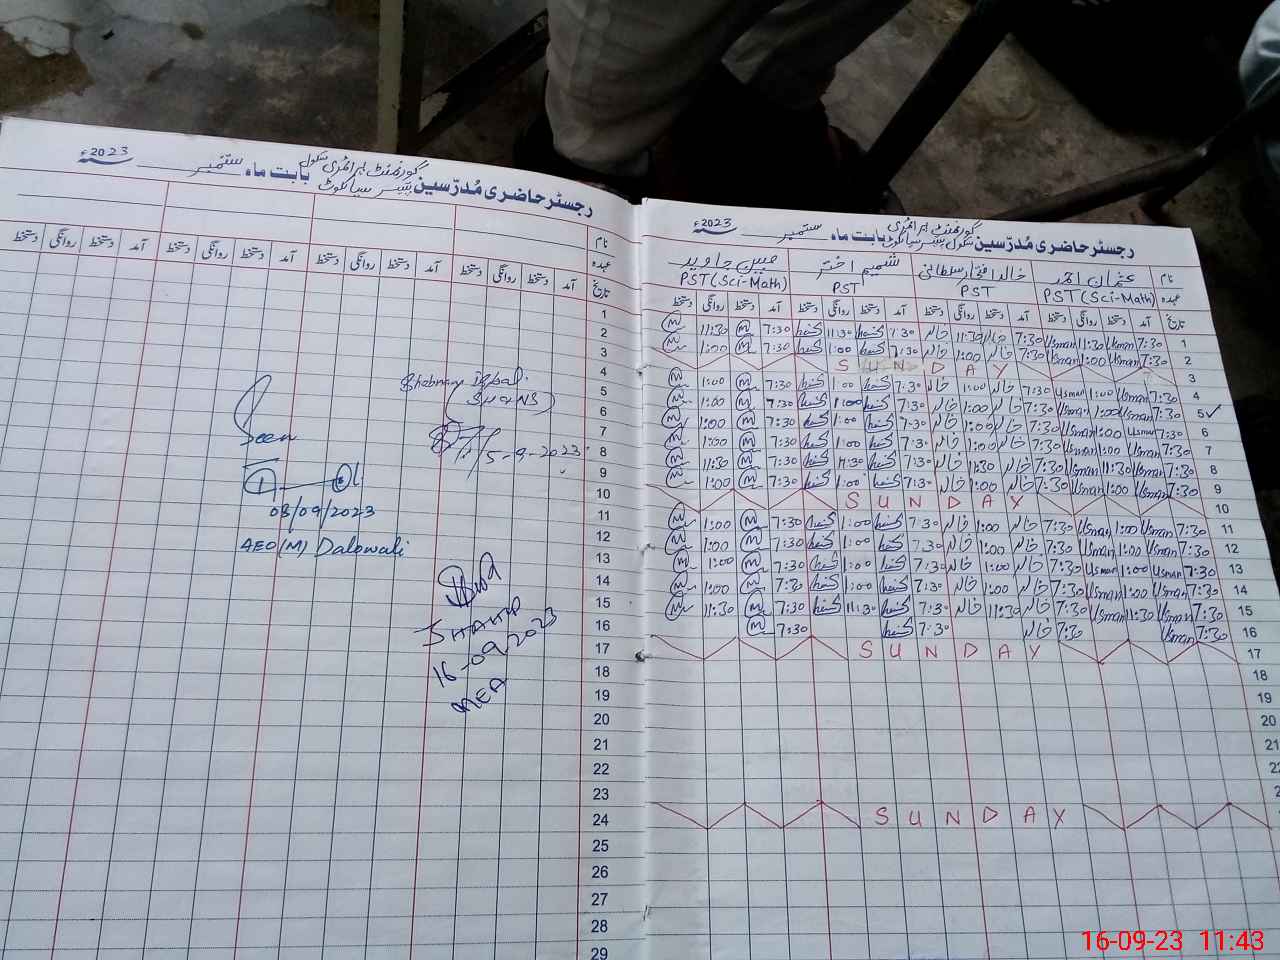 رجسٹر حاضری مُدرّسین گورنمنٹ پرائمری سکول سیالکوٹ بابت ماہ ستمبر 2023ء
نام
عہدہ
تاریخ آمد دستخط روانگی دستخط آمد دستخط روانگی دستخط آمد دستخط روانگی دستخط آمد دستخط روانگی دستخط
1
2
3
4
5
6
7
8
9
10
11
12
13
14
15
16
17
18
19
20
21
22
23
24
25
26
27
28
29
Shabnam Iqbal
5-9-2023
Seen
08/09/2023
AEO (M) Dalowali
16-09-2023
MEA
رجسٹر حاضری مُدرّسین گورنمنٹ پرائمری سکول سیالکوٹ بابت ماہ ستمبر 2023ء
نام عثمان احمد خالد افتخار سلطانی شمیم اختر مبین جاوید
عہدہ PST (Sci-Math) PST PST PST (Sci-Math)
تاریخ آمد دستخط روانگی دستخط آمد دستخط روانگی دستخط آمد دستخط روانگی دستخط آمد دستخط روانگی دستخط
1 7:30 Usman 11:30 Usman 7:30 خالد 11:30 خالد 7:30 11:30 7:30 M 11:30 M
2 7:30 Usman 1:00 Usman 7:30 خالد 1:00 خالد 7:30 1:00 7:30 M 1:00 M
3 SUNDAY
4 7:30 Usman 1:00 Usman 7:30 خالد 1:00 خالد 7:30 1:00 7:30 M 1:00 M
5✓ 7:30 Usman 1:00 Usman 7:30 خالد 1:00 خالد 7:30 1:00 7:30 M 1:00 M
6 7:30 Usman 1:00 Usman 7:30 خالد 1:00 خالد 7:30 1:00 7:30 M 1:00 M
7 7:30 Usman 1:00 Usman 7:30 خالد 1:00 خالد 7:30 1:00 7:30 M 1:00 M
8 7:30 Usman 11:30 Usman 7:30 خالد 11:30 خالد 7:30 11:30 7:30 M 11:30 M
9 7:30 Usman 1:00 Usman 7:30 خالد 1:00 خالد 7:30 1:00 7:30 M 1:00 M
10 SUNDAY
11 7:30 Usman 1:00 Usman 7:30 خالد 1:00 خالد 7:30 1:00 7:30 M 1:00 M
12 7:30 Usman 1:00 Usman 7:30 خالد 1:00 خالد 7:30 1:00 7:30 M 1:00 M
13 7:30 Usman 1:00 Usman 7:30 خالد 1:00 خالد 7:30 1:00 7:30 M 1:00 M
14 7:30 Usman 1:00 Usman 7:30 خالد 1:00 خالد 7:30 1:00 7:30 M 1:00 M
15 7:30 Usman 11:30 Usman 7:30 خالد 11:30 خالد 7:30 11:30 7:30 M 11:30 M
16 7:30 Usman 7:30 خالد 7:30 7:30 M
17 SUNDAY
18
19
20
21
SUNDAY
16-09-23 11:43